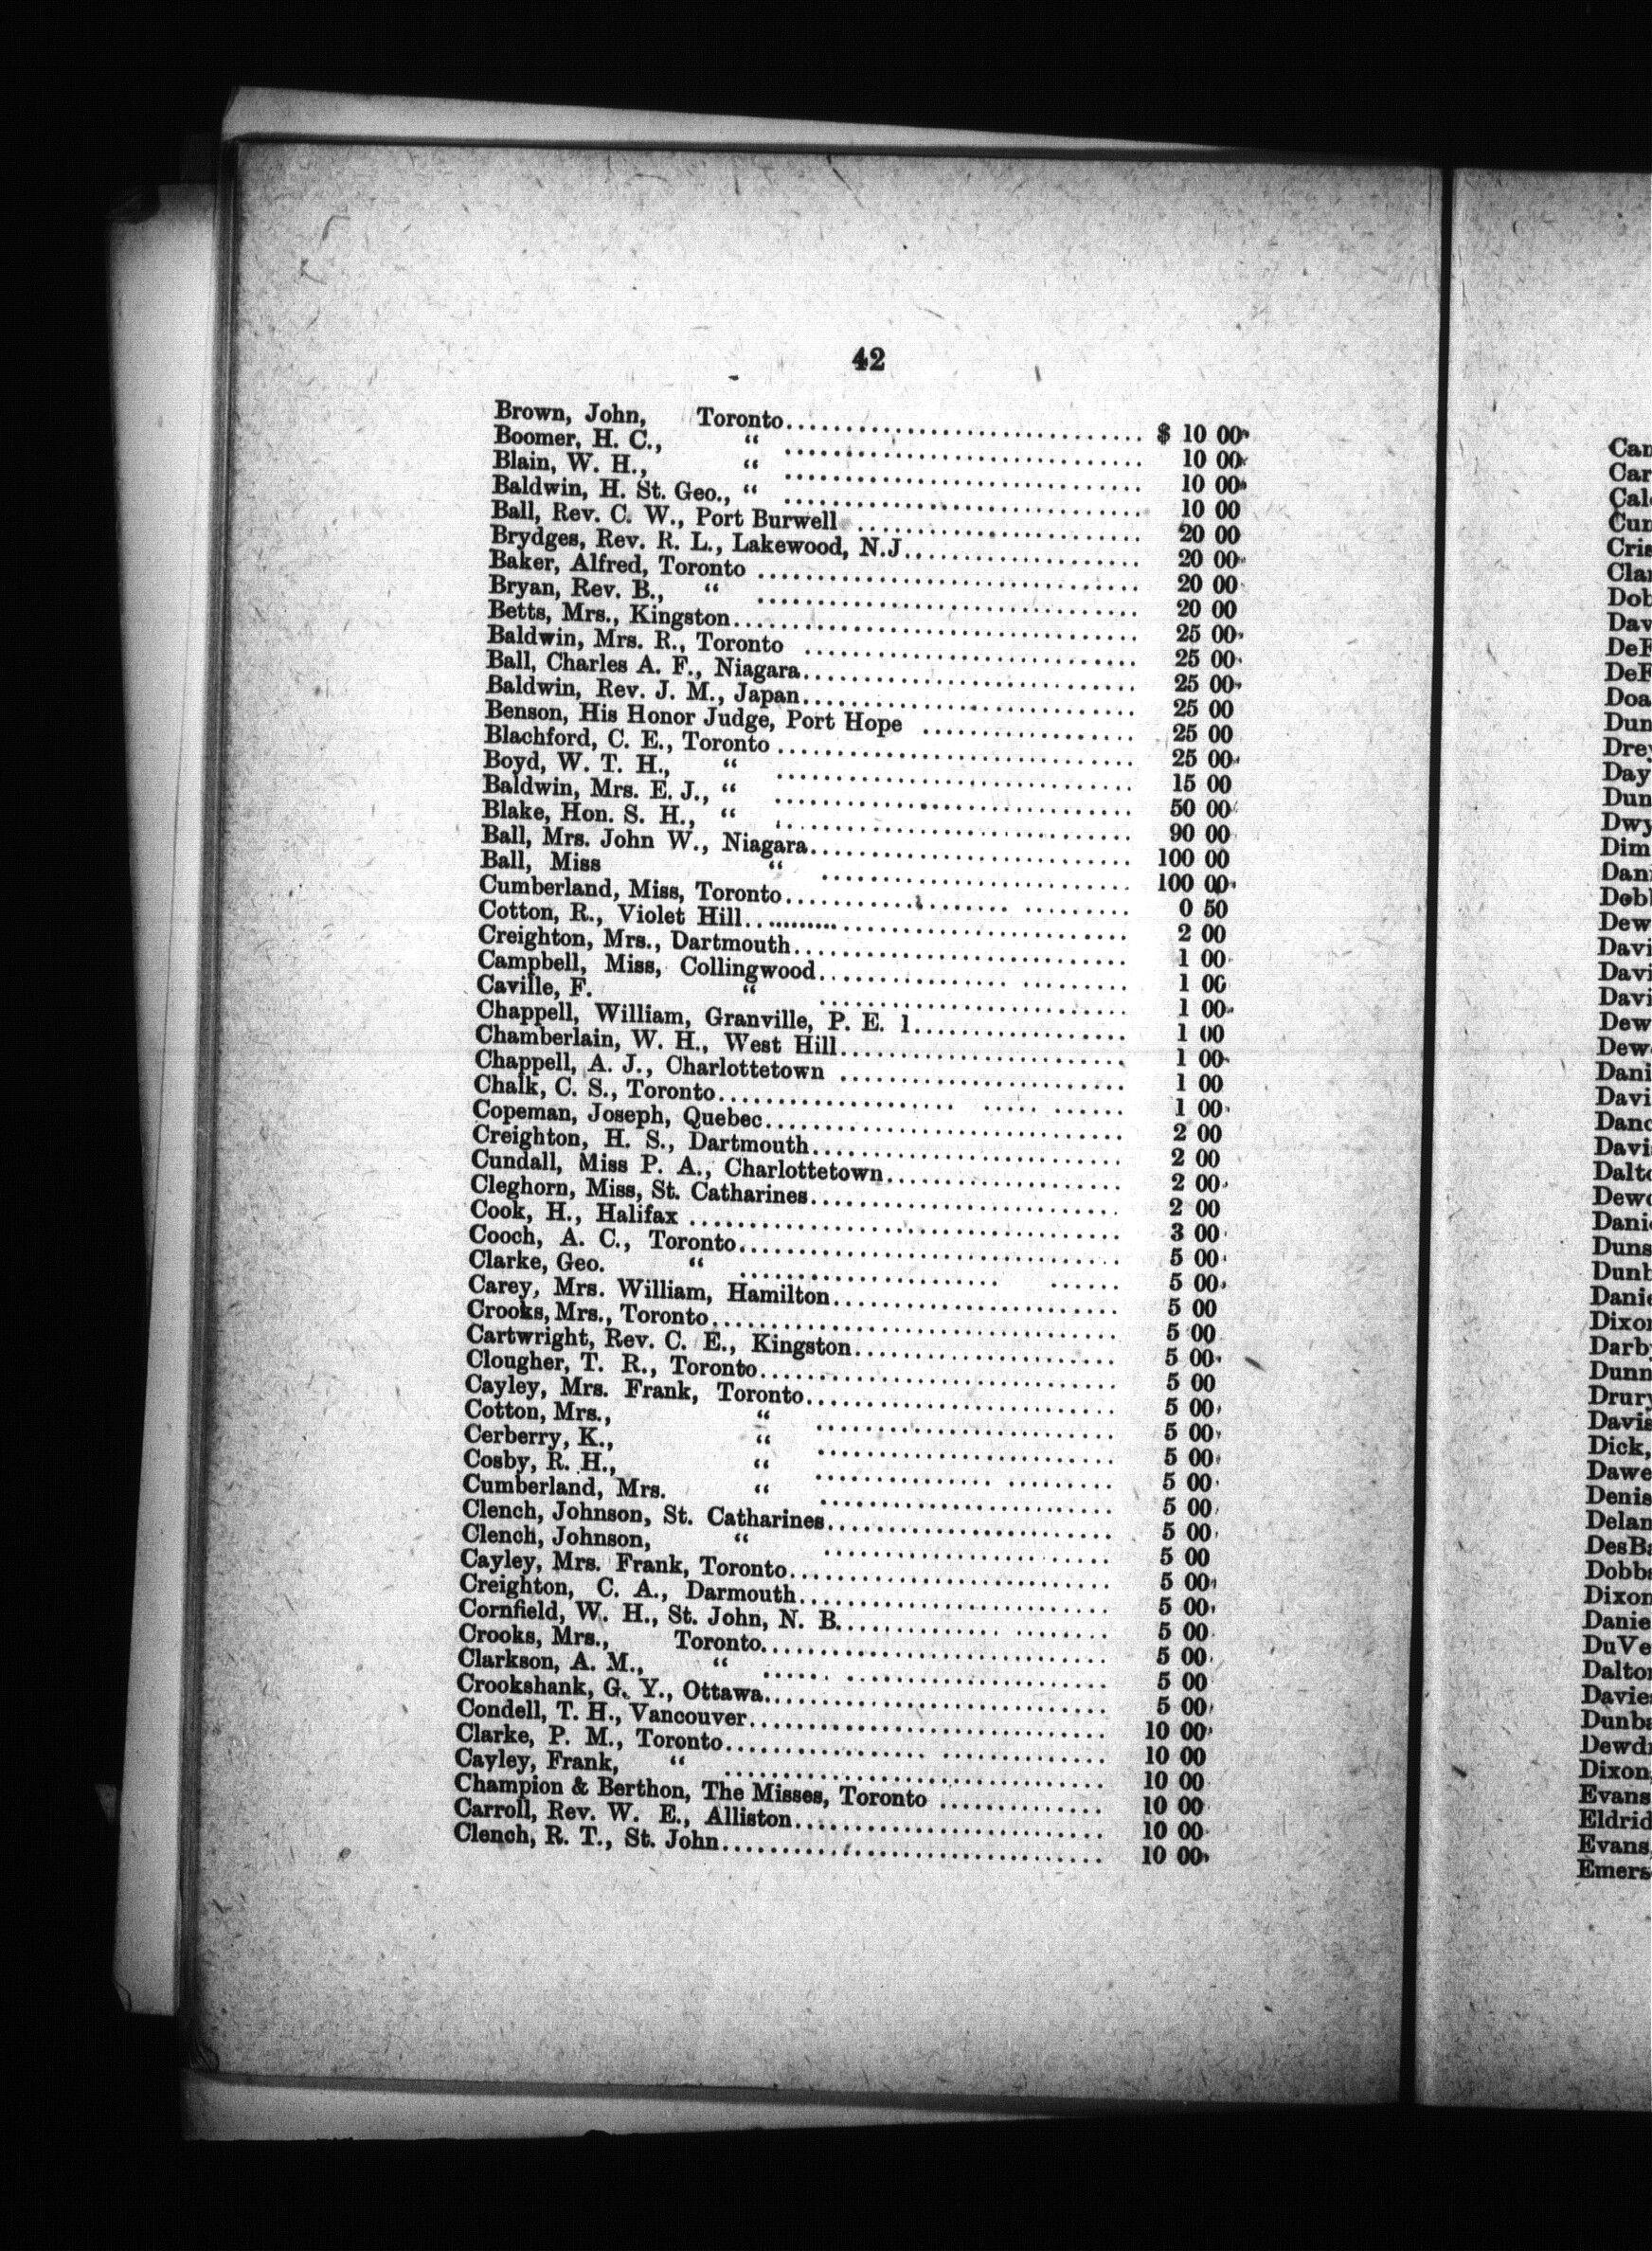 42
Brown, John, Toronto........................ $ 10 00
Boomer, H. C., “ ........................ 10 00
Blain, W. H., “ ........................ 10 00
Baldwin, H. St. Geo., “ ........................ 10 00
Ball, Rev. C. W., Port Burwell ........................ 20 00
Brydges, Rev. R. L., Lakewood, N.J........................ 20 00
Baker, Alfred, Toronto ........................ 20 00
Bryan, Rev. B., “ ........................ 20 00
Betts, Mrs., Kingston........................ 25 00
Baldwin, Mrs. R., Toronto ........................ 25 00
Ball, Charles A. F., Niagara........................ 25 00
Baldwin, Rev. J. M., Japan........................ 25 00
Benson, His Honor Judge, Port Hope .................. 25 00
Blachford, C. E., Toronto ........................ 25 00
Boyd, W. T. H., “ ........................ 15 00
Baldwin, Mrs. E. J., “ ........................ 50 00
Blake, Hon. S. H., “ ........................ 90 00
Ball, Mrs. John W., Niagara........................ 100 00
Ball, Miss “ ........................ 100 00
Cumberland, Miss, Toronto........................ 0 50
Cotton, R., Violet Hill........................ 2 00
Creighton, Mrs., Dartmouth........................ 1 00
Campbell, Miss, Collingwood........................ 1 00
Caville, F. “ ........................ 1 00
Chappell, William, Granville, P. E. 1.................. 1 00
Chamberlain, W. H., West Hill........................ 1 00
Chappell, A. J., Charlottetown ........................ 1 00
Chalk, C. S., Toronto........................ 1 00
Copeman, Joseph, Quebec........................ 2 00
Creighton, H. S., Dartmouth........................ 2 00
Cundall, Miss P. A., Charlottetown.................. 2 00
Cleghorn, Miss, St. Catharines........................ 2 00
Cook, H., Halifax ........................ 3 00
Cooch, A. C., Toronto........................ 5 00
Clarke, Geo. “ ........................ 5 00
Carey, Mrs. William, Hamilton........................ 5 00
Crooks, Mrs., Toronto........................ 5 00
Cartwright, Rev. C. E., Kingston........................ 5 00
Clougher, T. R., Toronto........................ 5 00
Cayley, Mrs. Frank, Toronto........................ 5 00
Cotton, Mrs., “ ........................ 5 00
Cerberry, K., “ ........................ 5 00
Cosby, R. H., “ ........................ 5 00
Cumberland, Mrs. “ ........................ 5 00
Clench, Johnson, St. Catharines........................ 5 00
Clench, Johnson, “ ........................ 5 00
Cayley, Mrs. Frank, Toronto........................ 5 00
Creighton, C. A., Darmouth........................ 5 00
Cornfield, W. H., St. John, N. B........................ 5 00
Crooks, Mrs., Toronto........................ 5 00
Clarkson, A. M., “ ........................ 5 00
Crookshank, G. Y., Ottawa........................ 5 00
Condell, T. H., Vancouver........................ 10 00
Clarke, P. M., Toronto........................ 10 00
Cayley, Frank, “ ........................ 10 00
Champion & Berthon, The Misses, Toronto .............. 10 00
Carroll, Rev. W. E., Alliston........................ 10 00
Clench, R. T., St. John........................ 10 00